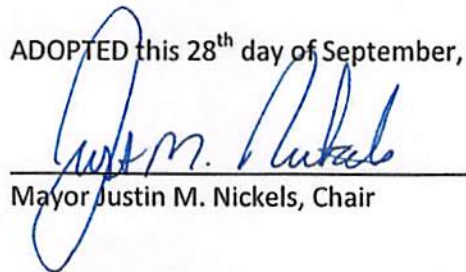 ADOPTED this 28th day of September,
Justin M. Nickels
Mayor Justin M. Nickels, Chair